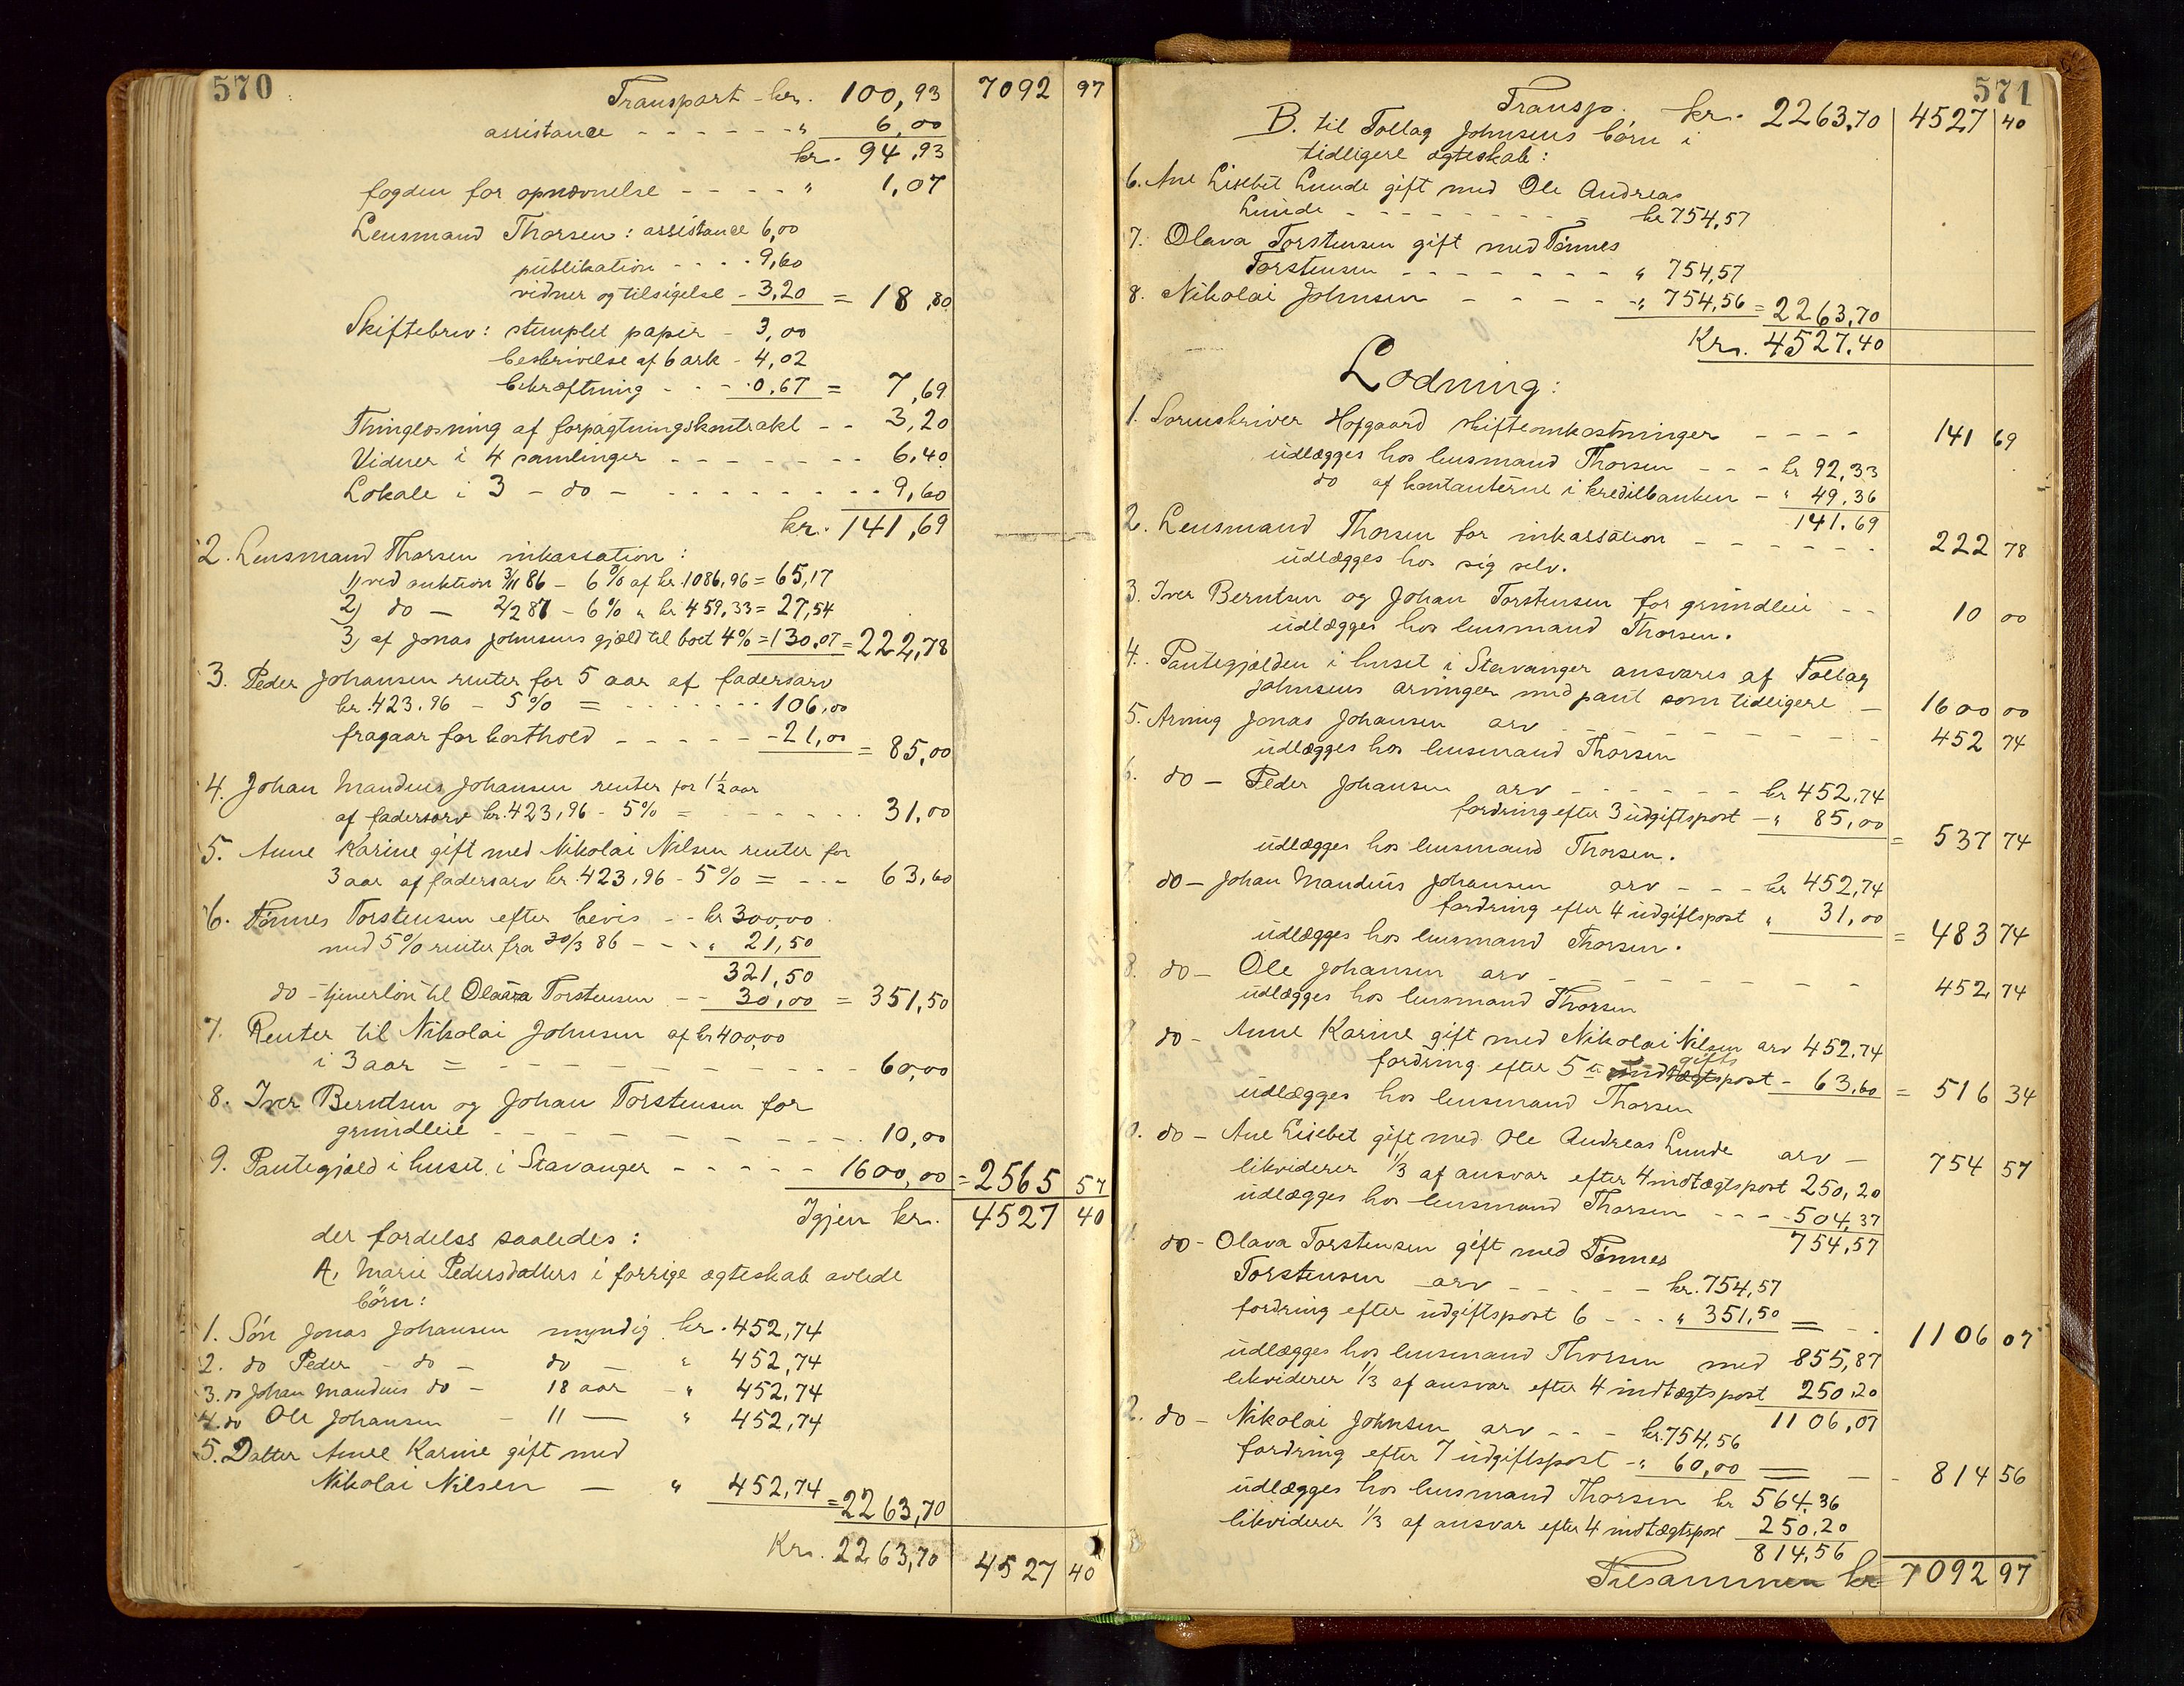 570
Transport kr. 100,93 7092 97
assistance - - - - - - " 6,00
kr. 94,93
fogden for opnævnelse - - - - " 1,07
Lensmand Thorsen: assistance 6,00
publikation - - - - 9,60
vidner og tilsigelse - 3,20 = 18,80
Skiftebrev: stemplet papir - 3,00
beskrivelse af 6 ark - 4,02
bekræftning - - - 0,67 = 7,69
Thinglæsning af forpagtningskontrakt - - 3,20
Vidner i 4 samlinger - - - - - - - 6,40
Lokale i 3 - do - - - - - - - - - 9,60
kr. 141,69
2. Lensmand Thorsen inkassation:
1) ved auktion 3/11 86 - 6% af kr. 1086,96 = 65,17
2) do - 2/2 87 - 6% " kr 459,33 = 27,54
3) af Jonas Johnsens gjæld til boet 4% = 130,07 = 222,78
3. Peder Johansen renter for 5 aar af fadersarv
kr. 423,96 - 5% = - - - - - - 106,00
fragaar for kosthold - - - - - - 21,00 = 85,00
4. Johan Mandius Johansen renter for 1½ aar
af fadersarv kr. 423,96 - 5% = - - - - - - 31,00
5. Anne Karine gift med Nikolai Nilsen renter for
3 aar af fadersarv kr. 423,96 - 5% = - - - 63,60
6. Tønnes Torstensen efter bevis - - kr 300,00
med 5% renter fra 30/3 86 - - - " 21,50
321,50
do - tjenerløn til Olava Torstensen - - 30,00 = 351,50
7. Renter til Nikolai Johnsen af kr 400,00
i 3 aar = - - - - - - - - - - - 60,00
8. Iver Berntsen og Johan Torstensen for
grundleie - - - - - - - - - - 10,00
9. Pantegjæld i huset i Stavanger - - - - - 1600,00 = 2565 57
Igjen kr. 4527 40
der fordeles saaledes:
A, Marie Pedersdatters i forrige ægteskab avlede
børn:
1. Søn Jonas Johansen myndig kr. 452,74
2. do Peder - do - do - " 452,74
3. do Johan Mandius do - 18 aar - " 452,74
4. do Ole Johansen - 11 - " 452,74
5. Datter Anne Karine gift med
Nikolai Nilsen - " 452,74 = 2263,70
Kr. 2263,70 4527 40
571
Transp. kr. 2263,70 4527 40
B. til Tollag Johnsens børn i
tidligere ægteskab:
6. Ane Lisebet Lunde gift med Ole Andreas
Lunde - - - - - - - - - kr 754,57
7. Olava Torstensen gift med Tønnes
Torstensen - - - - - - - - " 754,57
8. Nikolai Johnsen - - - - - " 754,56 = 2263,70
Kr. 4527,40
Lodning:
1. Sorenskriver Hofgaard skifteomkostninger - - - - 141 69
udlægges hos lensmand Thorsen - - - kr 92,33
do af kontanterne i kreditbanken - " 49,36
141,69
2. Lensmand Thorsen for inkassation - - - - - - 222 78
udlægges hos sig selv.
3. Iver Berntsen og Johan Torstensen for grundleie - - 10 00
udlægges hos lensmand Thorsen.
4. Pantegjælden i huset i Stavanger ansvares af Tollag
Johnsens arvinger med pant som tidligere - 1600 00
5. Arving Jonas Johansen arv - - - - - - - 452 74
udlægges hos lensmand Thorsen
6. do - Peder Johansen arv - - - - - - kr 452,74
fordring efter 3 udgiftspost - " 85,00 = 537 74
udlægges hos lensmand Thorsen.
7. do - Johan Mandius Johansen arv - - - kr 452,74
fordring efter 4 udgiftspost " 31,00 = 483 74
udlægges hos lensmand Thorsen.
8. do - Ole Johansen arv - - - - - - - - 452 74
udlægges hos lensmand Thorsen
9. do - Anne Karine gift med Nikolai Nilsen arv 452,74
gifts
fordring efter 5te indtægtspost - 63,60 = 516 34
udlægges hos lensmand Thorsen
10. do - Ane Lisebet gift med Ole Andreas Lunde arv - 754 57
likviderer 1/3 af ansvar efter 4 indtægtspost 250,20
udlægges hos lensmand Thorsen - - - 504,37
754,57
11. do - Olava Torstensen gift med Tønnes
Torstensen arv - - - - - kr. 754,57
fordring efter udgiftspost 6 - - - " 351,50 = - - 1106 07
udlægges hos lensmand Thorsen med 855,87
likviderer 1/3 af ansvar efter 4 indtægtspost 250,20
1106,07
12. do - Nikolai Johnsen arv - - - kr. 754,56
fordring efter 7 udgiftspost - " 60,00 = - - 814 56
udlægges hos lensmand Thorsen kr 564,36
likviderer 1/3 af ansvar efter 4 indtægtspost 250,20
814,56
Tilsammen kr 7092 97